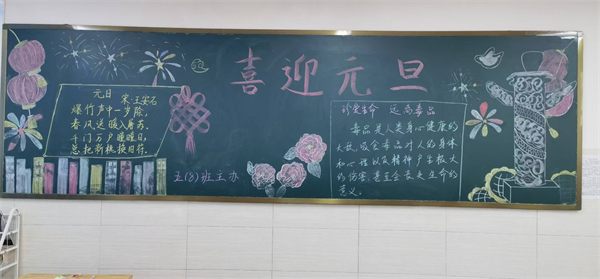 喜迎元旦
元日
宋·王安石
爆竹声中一岁除,
春风送暖入屠苏,
千门万户曈曈日,
总把新桃换旧符。
五(8)班主办
珍爱生命 远离毒品
毒品是人类身心健康的
大敌,吸食毒品对人的身体
和心理以及精神产生极大
的伤害,甚至会丧失生命的
意义。